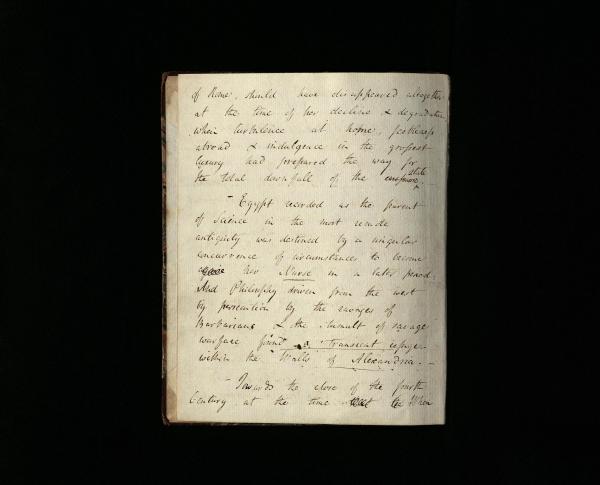 of Rome, should have disappeared altogether
at the time of her decline & degradation
when turbulence at home, feebleness
abroad & indulgence in the grossest
luxury had prepared the way for
the total downfall of the empire state.
- Egypt recorded as the parent
of Science in the most remote
antiquity was destined by a singular
concurrence of circumstances to become
her Nurse in a later period.
And Philosophy driven from the west
by persecution by the ravages of
Barbarians & the tumult of savage
warfare found a transient refuge
within the Walls of Alexandria. -
- Towards the close of the fourth
Century at the time When